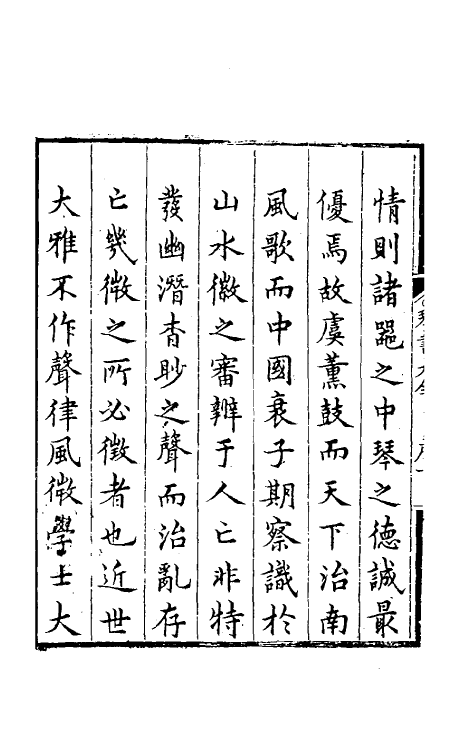 情則諸噐之中琴之德誠最
優焉故虞薰鼓而天下治南
風歌而中國衰子期察識於
山水微之審辨于人亡非特
發幽潛杳眇之聲而治亂存
亡幾微之所必徵者也近世
大雅不作聲律風微學士大